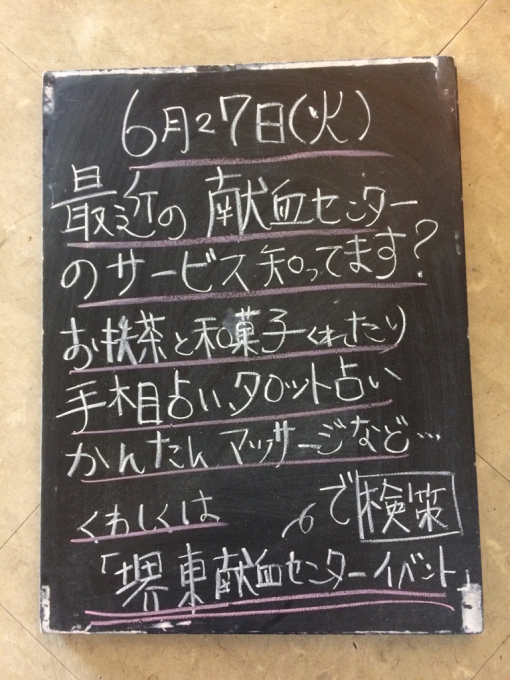 6月27日(火)
最近の献血センター
のサービス知ってます?
お抹茶と和菓子くれたり
手相占い、タロット占い
かんたんマッサージなど…
くわしくは
で検策
「堺東献血センターイベント